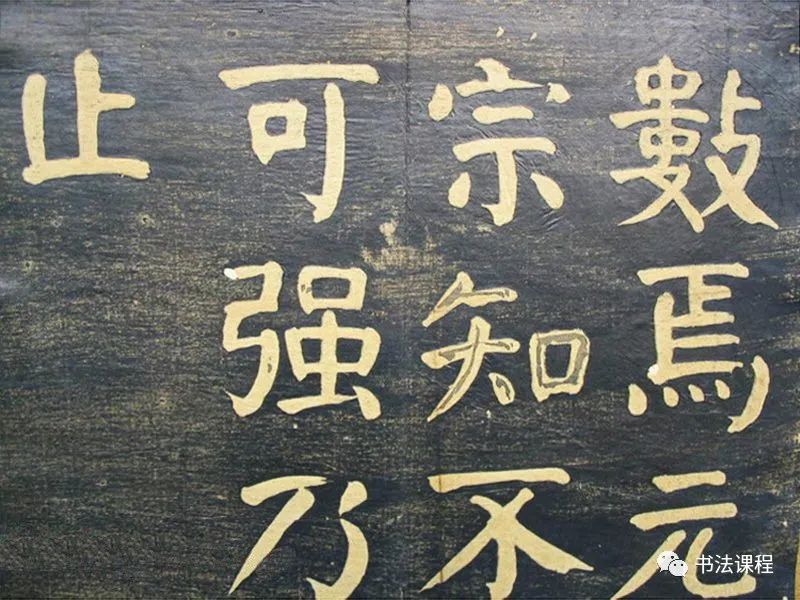 數焉元
宗知不
可强乃
止
书法课程